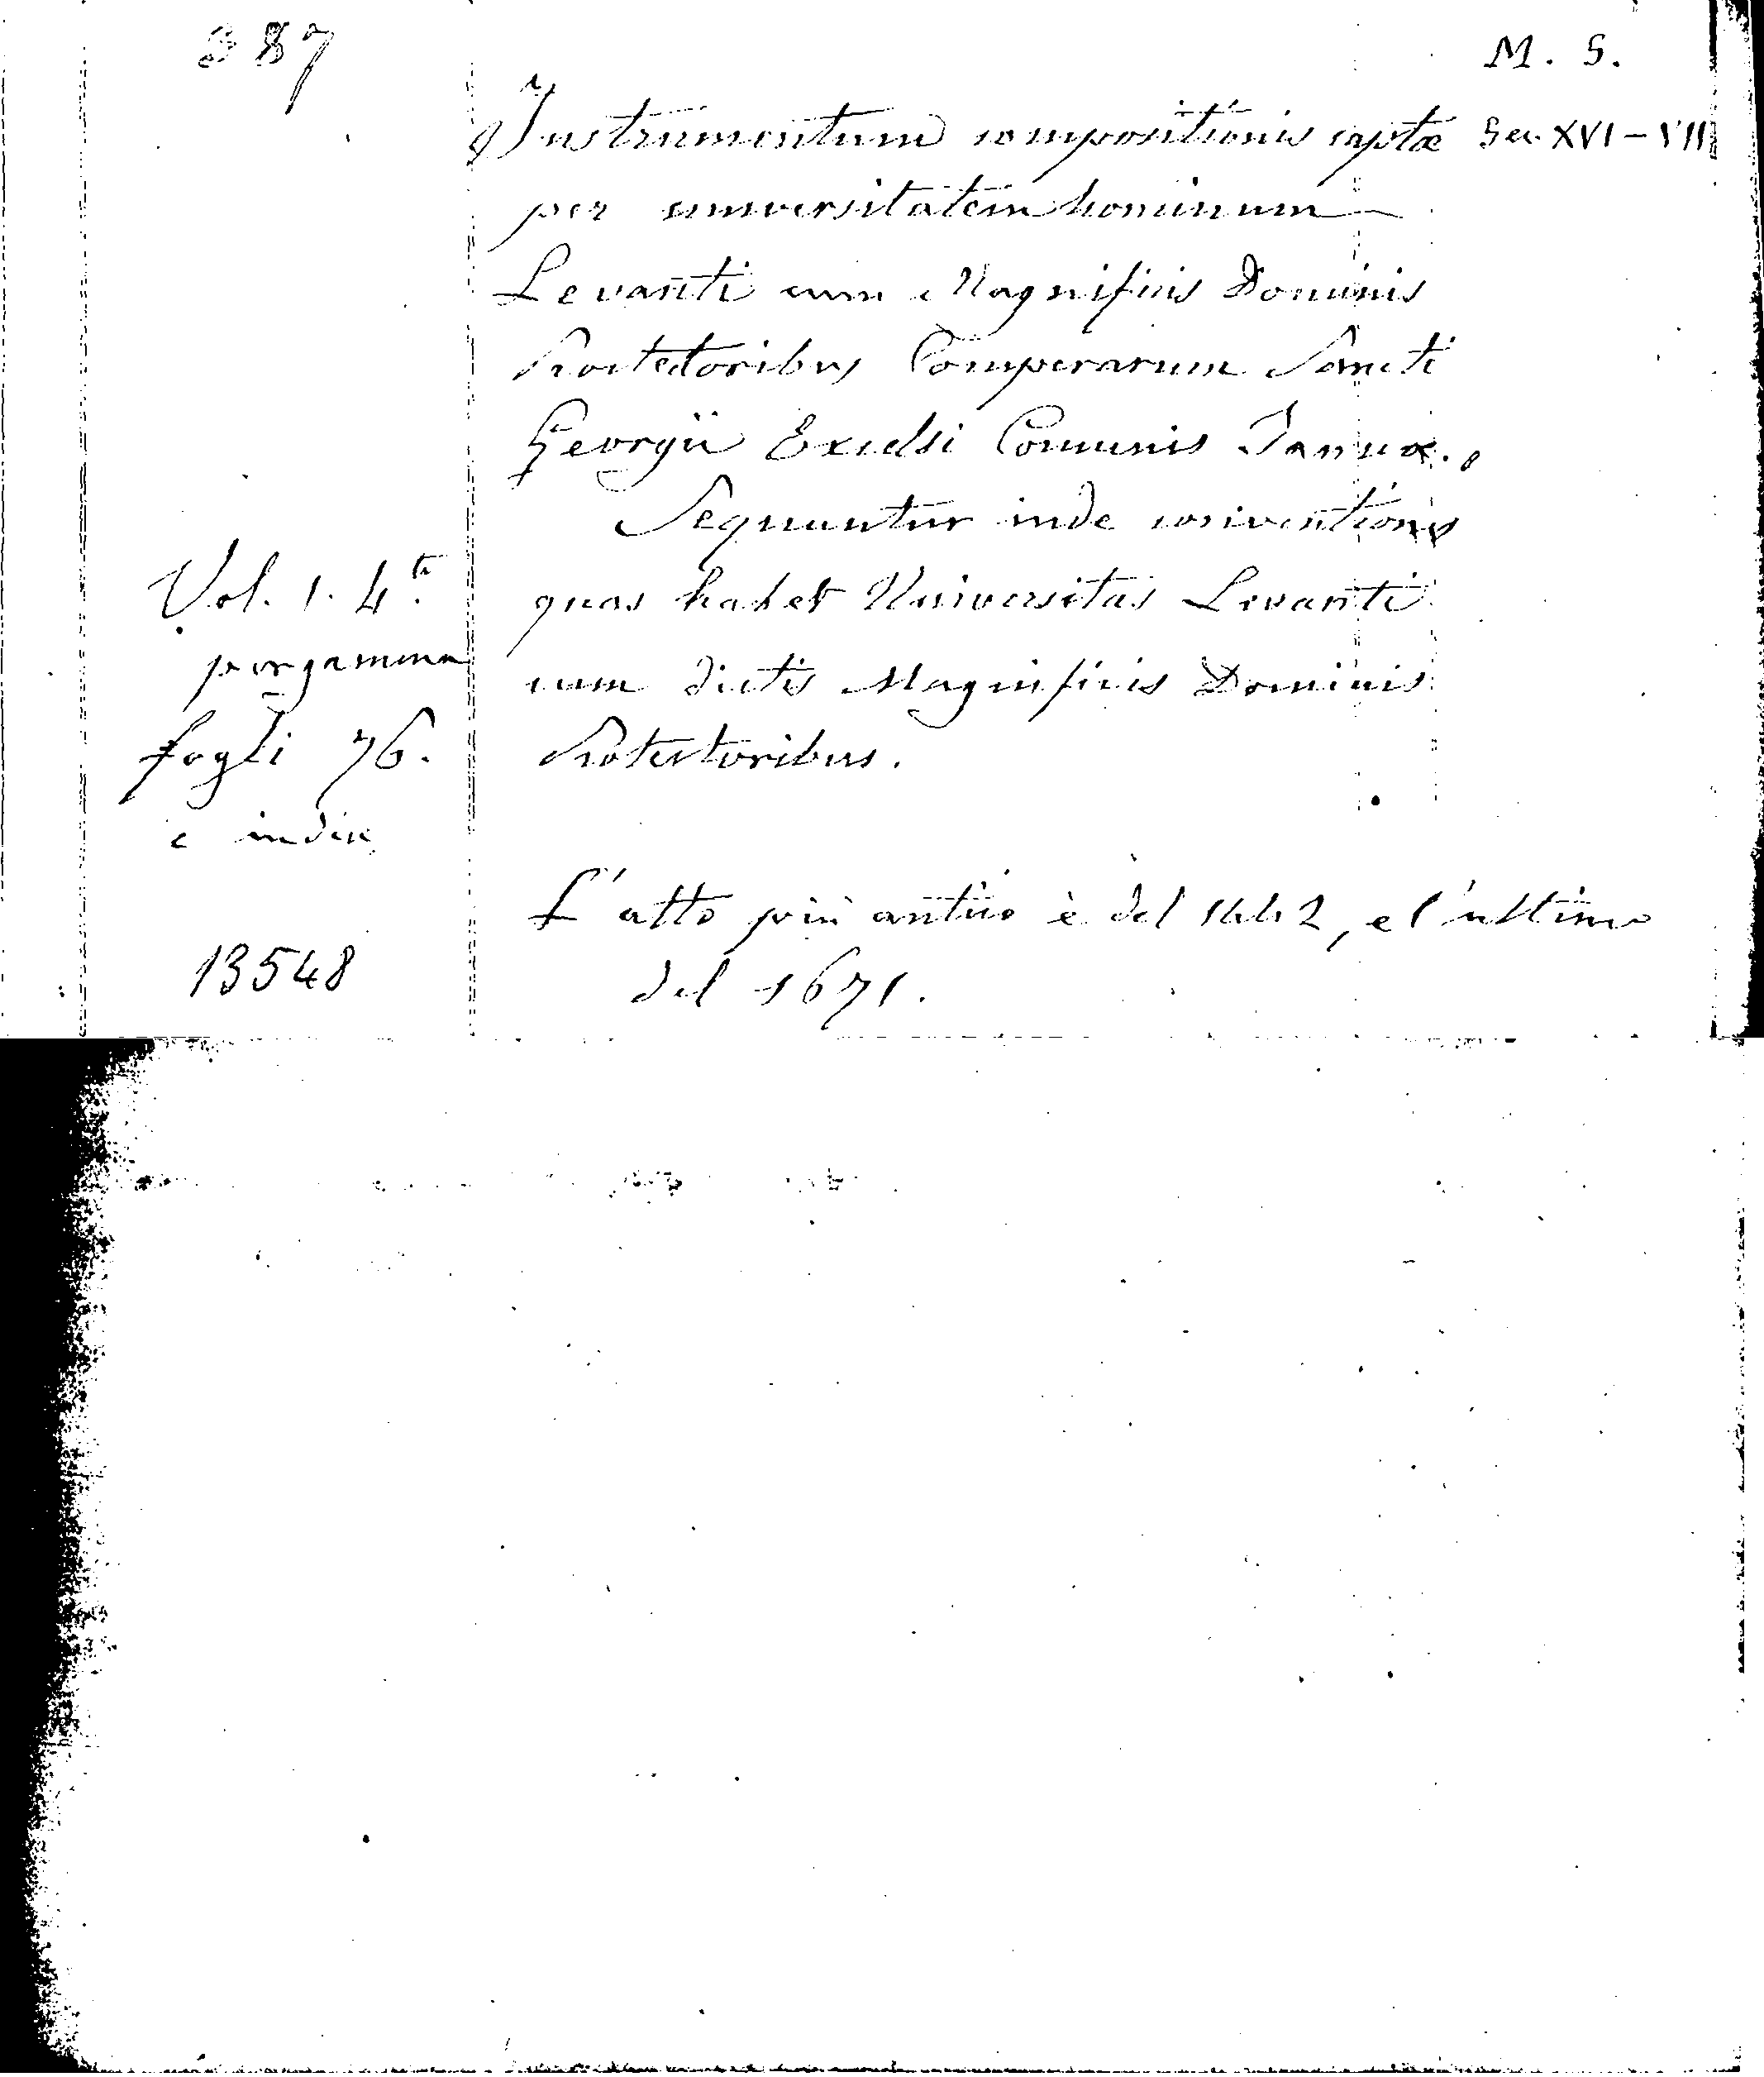 387
M. S.
Instrumentum compositionis captæ Sec. XVI-VII
per universitatem hominum
Levanti cum Magnificis Dominis
Protectoribus Comperarum Sancti
Georgii Excelsi Comunis Januæ.
Sequuntur inde conventiones
Vol. 1. 4to. quas habet Universitas Levanti
pergamena cum dictis Magnificis Dominis
fogli 76. Protectoribus.
e indice
L'atto più antico è del 1442, e l'ultimo
13548 del 1671.